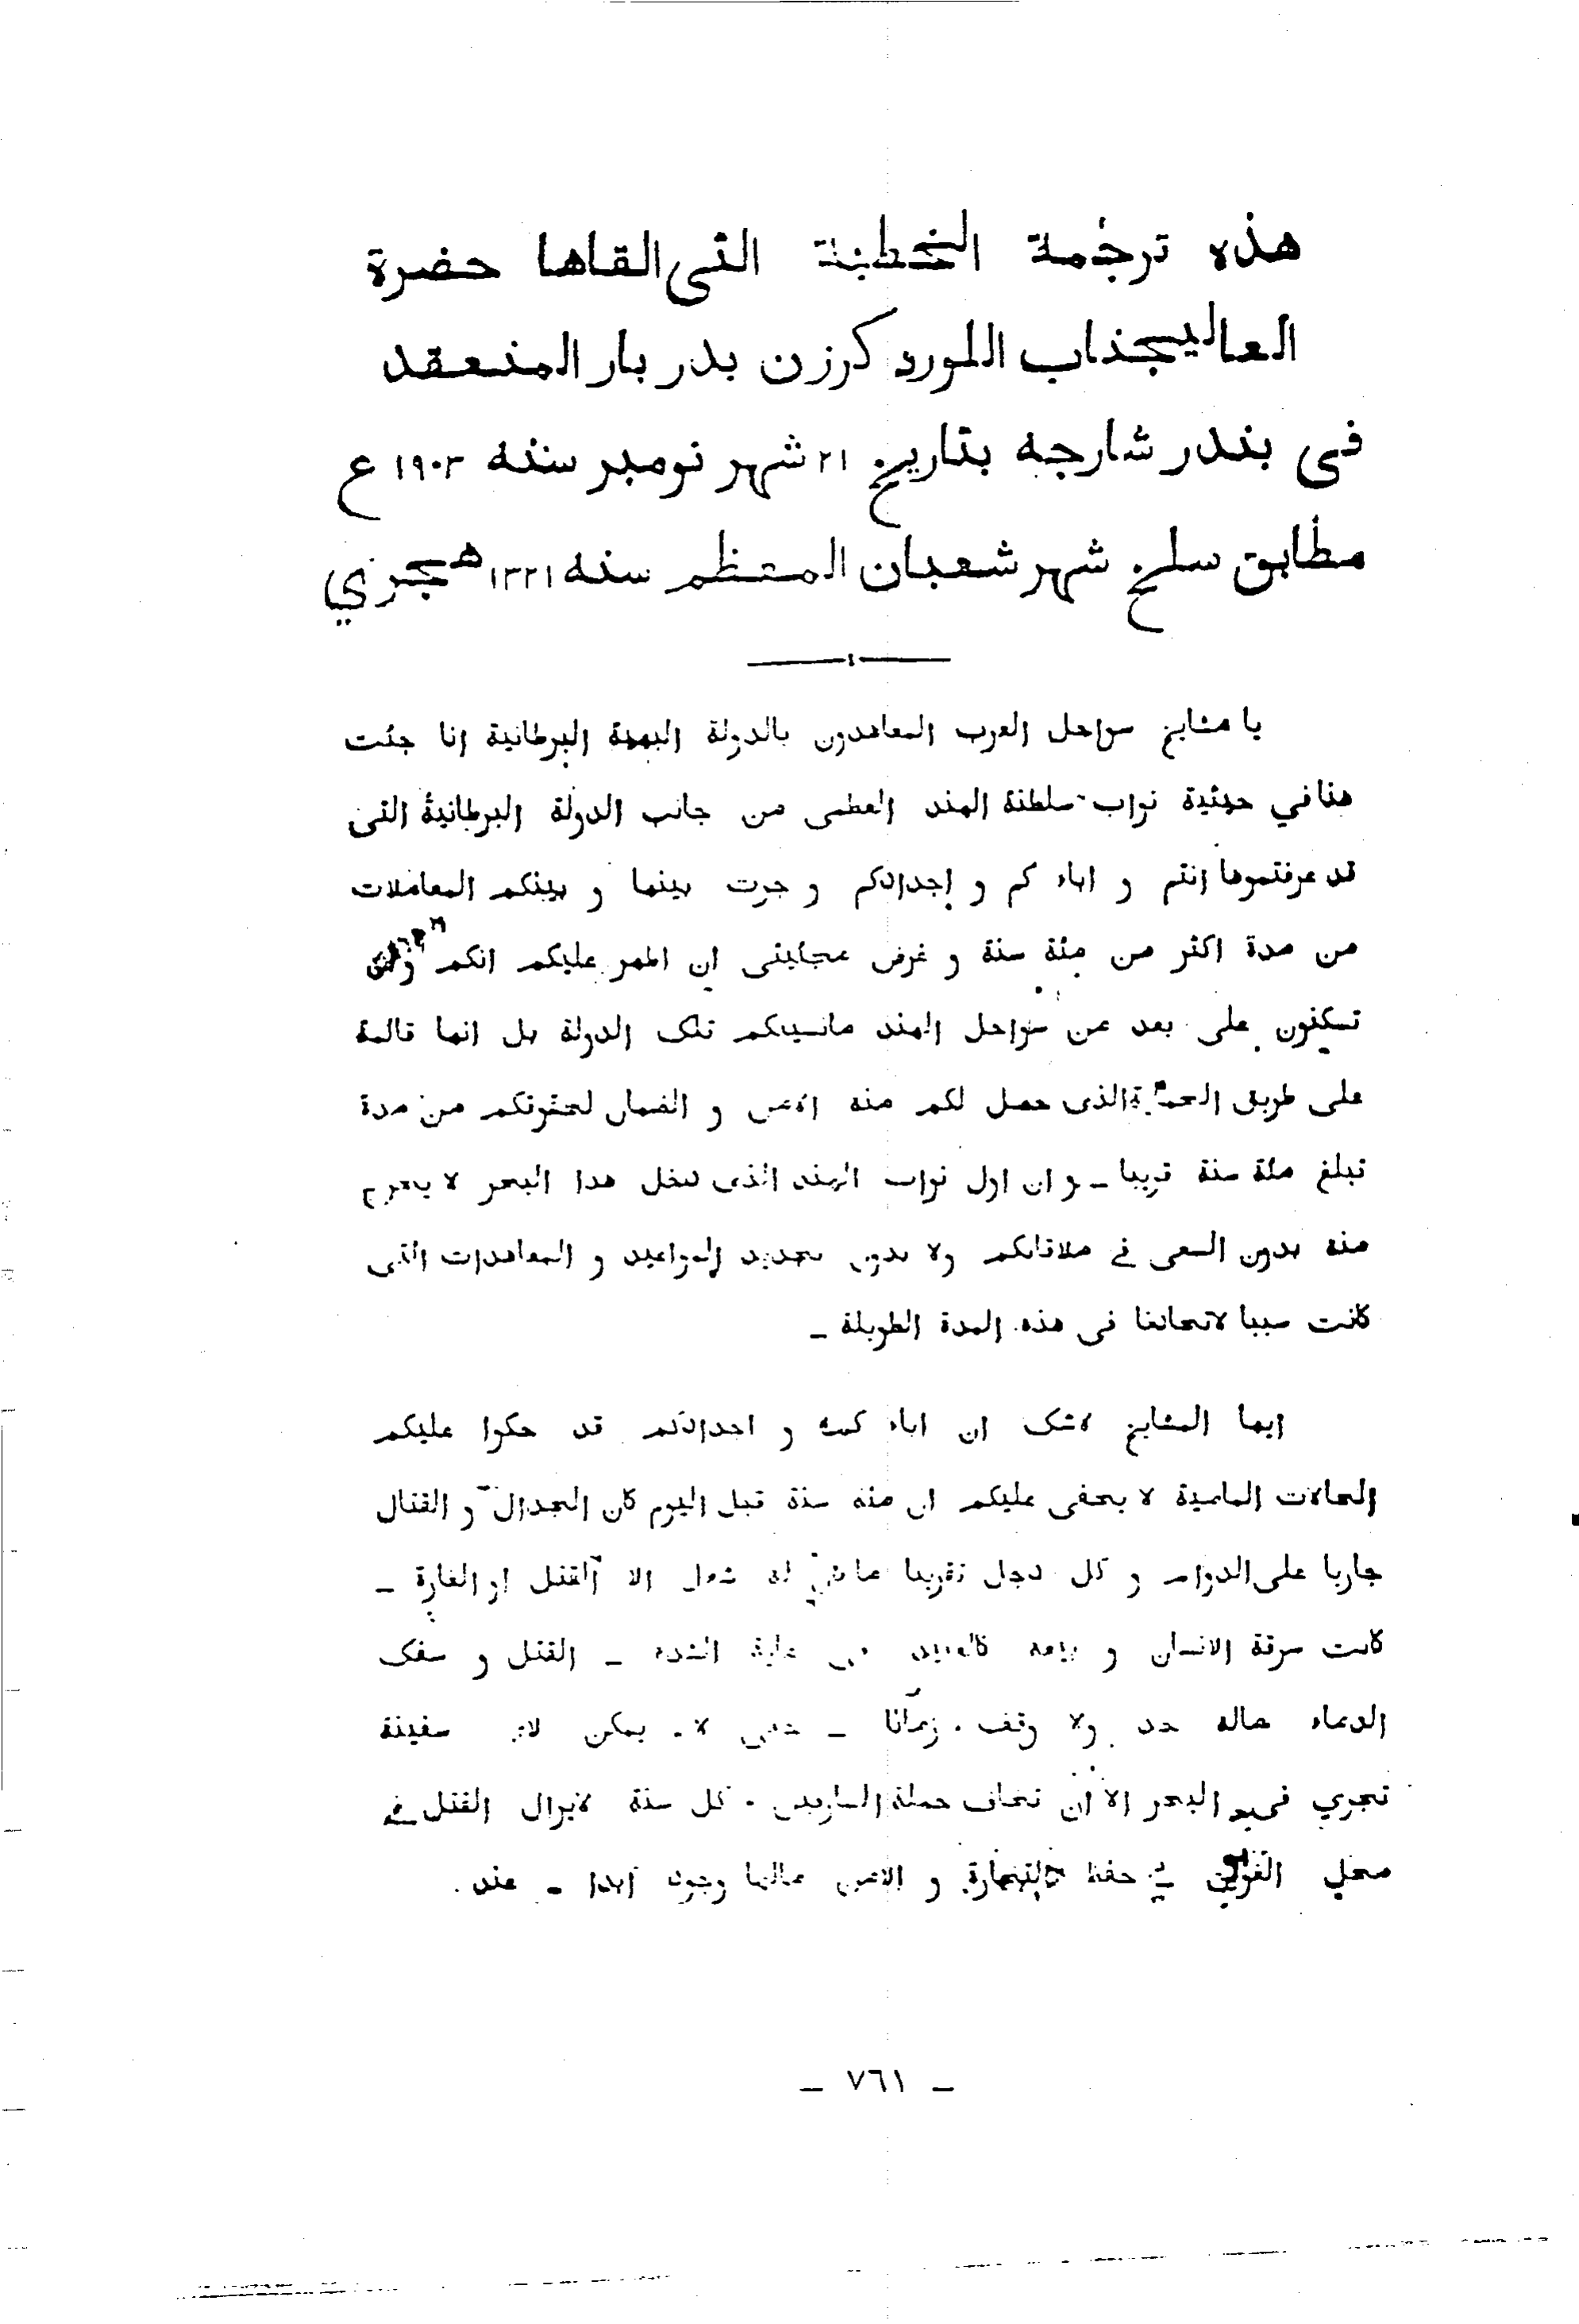 هذه ترجمة الخطبة التى القاها حضرة
العاليجناب اللورد كرزن بدربار المنعقد
فى بندر شارجه بتاريخ ٢١ شهر نومبر سنه ١٩٠٣ ع
مطابق سلخ شهر شعبان المعظم سنه ١٣٢١ هجري
يا مشايخ سواحل العرب المعاهدون بالدولة البهية البرطانية انا جئت
هنا في حيثية نواب سلطنة الهند العظمى من جانب الدولة البرطانية التى
قد عرفتموها انتم و اباء كم و اجدادكم و جرت بينها و بينكم المعاملات
من مدة اكثر من مئة سنة و غرض مجيئى ان اظهر عليكم انكم
تسكنون على بعد من سواحل الهند مانسيتكم تلك الدولة بل انها قائمة
على طريق الحماية الذى حصل لكم منه الامن و الضمان لحقوقكم من مدة
تبلغ مئة سنة قريبا ـ و ان اول نواب الهند الذى دخل هذا البحر لا يخرج
منه بدون السعى في ملاقاتكم ولا بدون تجديد المواعيد و المعاهدات التى
كانت سببا لاتحادنا فى هذه المدة الطويلة ـ
ايها المشايخ لاشك ان اباء كم و اجدادكم قد حكوا عليكم
الحالات الماضية لا يخفى عليكم ان مئة سنة قبل اليوم كان الجدال و القتال
جاريا على الدوام و كل رجل تقريبا ما له شغل الا القتل او الغارة ـ
كانت سرقة الانسان و بيعه كالعبيد فى غاية الشدة ـ القتل و سفك
الدماء ماله حد ولا وقف زمانا ـ حتى لا يمكن لاى سفينة
تجري فى البحر الا ان تخاف حملة السارقين ـ كل سنة لايزال القتل في
محل الغوص في حفظ التجارة و الامن مالها وجود ابدا ـ عند
ـ ٧٦١ ـ